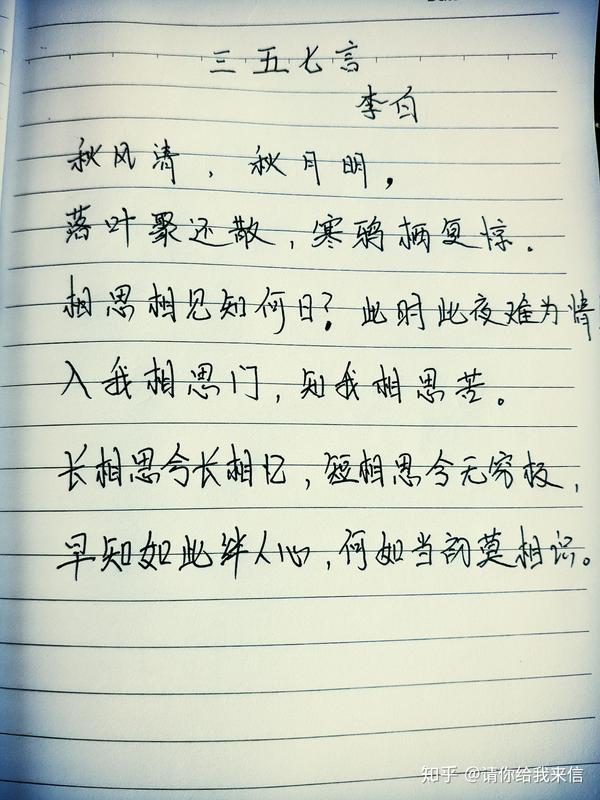 三五七言
李白
秋风清，秋月明，
落叶聚还散，寒鸦栖复惊。
相思相见知何日？此时此夜难为情
入我相思门，知我相思苦。
长相思兮长相忆，短相思兮无穷极，
早知如此绊人心，何如当初莫相识。
知乎 @请你给我来信